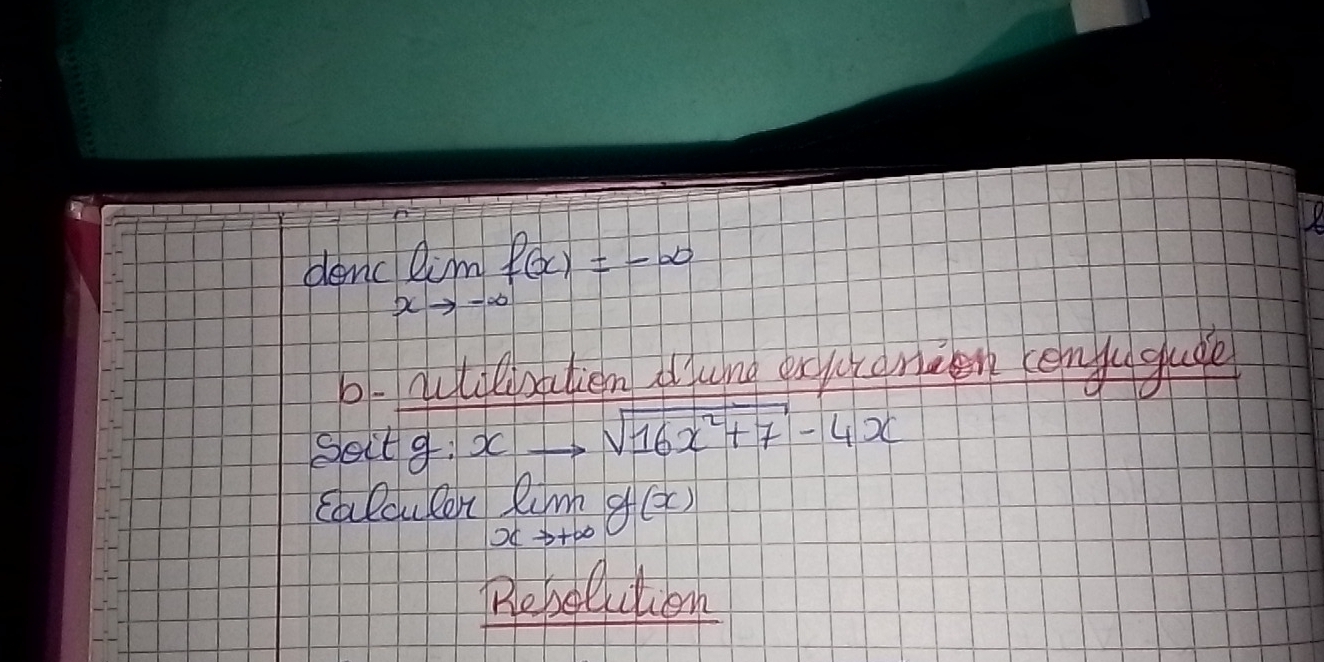 donc lim f(x) = -∞
x → -∞
b- utilisation d'une expression conjuguée
Soit g : x → √16x²+7 - 4x
Calculer lim g(x)
x → +∞
Résolution